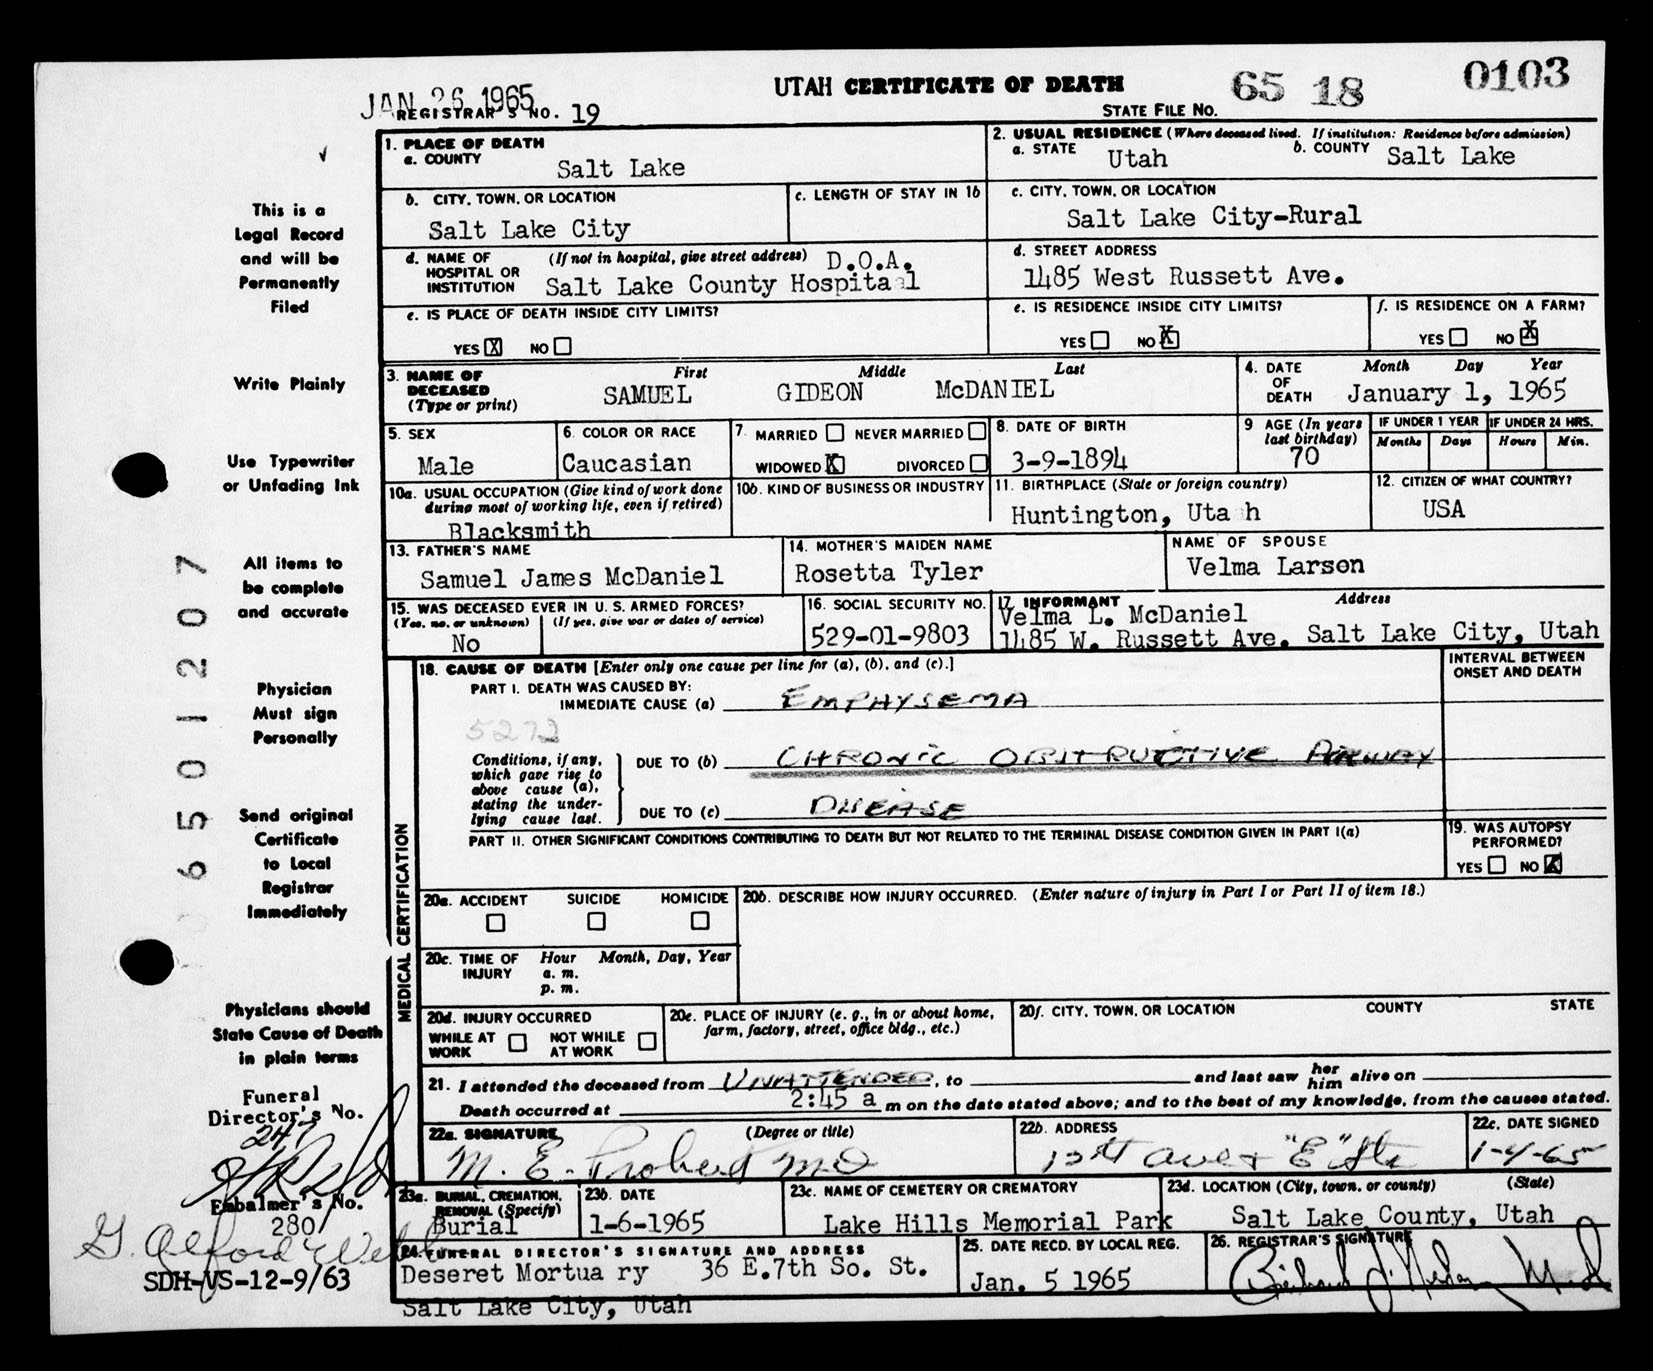 JAN 26 1965
UTAH CERTIFICATE OF DEATH
65 18 0103
REGISTRAR'S NO. 19
STATE FILE NO.
This is a
Legal Record
and will be
Permanently
Filed
Write Plainly
Use Typewriter
or Unfading Ink
All items to
be complete
and accurate
Physician
Must sign
Personally
Send original
Certificate
to Local
Registrar
Immediately
Physicians should
State Cause of Death
in plain terms
Funeral
Director's No.
247
Embalmer's No.
280
G. Alford Webb
SDH-VS-12-9/63
6501207
1. PLACE OF DEATH
a. COUNTY
Salt Lake
2. USUAL RESIDENCE (Where deceased lived. If institution: Residence before admission)
a. STATE Utah b. COUNTY Salt Lake
b. CITY, TOWN, OR LOCATION
Salt Lake City
c. LENGTH OF STAY IN 1b
c. CITY, TOWN, OR LOCATION
Salt Lake City-Rural
d. NAME OF HOSPITAL OR INSTITUTION (If not in hospital, give street address) D.O.A.
Salt Lake County Hospital
d. STREET ADDRESS
1485 West Russett Ave.
e. IS PLACE OF DEATH INSIDE CITY LIMITS?
YES X NO
e. IS RESIDENCE INSIDE CITY LIMITS?
YES NO X
f. IS RESIDENCE ON A FARM?
YES NO X
3. NAME OF DECEASED (Type or print)
First Middle Last
SAMUEL GIDEON McDANIEL
4. DATE OF DEATH Month Day Year
January 1, 1965
5. SEX
Male
6. COLOR OR RACE
Caucasian
7. MARRIED NEVER MARRIED
WIDOWED X DIVORCED
8. DATE OF BIRTH
3-9-1894
9 AGE (In years last birthday)
70
IF UNDER 1 YEAR
Months Days
IF UNDER 24 HRS.
Hours Min.
10a. USUAL OCCUPATION (Give kind of work done during most of working life, even if retired)
Blacksmith
10b. KIND OF BUSINESS OR INDUSTRY
11. BIRTHPLACE (State or foreign country)
Huntington, Utah
12. CITIZEN OF WHAT COUNTRY?
USA
13. FATHER'S NAME
Samuel James McDaniel
14. MOTHER'S MAIDEN NAME
Rosetta Tyler
NAME OF SPOUSE
Velma Larsen
15. WAS DECEASED EVER IN U. S. ARMED FORCES?
(Yes, no, or unknown) (If yes, give war or dates of service)
No
16. SOCIAL SECURITY NO.
529-01-9803
17. INFORMANT Address
Velma L. McDaniel
1485 W. Russett Ave. Salt Lake City, Utah
MEDICAL CERTIFICATION
18. CAUSE OF DEATH [Enter only one cause per line for (a), (b), and (c).]
INTERVAL BETWEEN ONSET AND DEATH
PART I. DEATH WAS CAUSED BY:
IMMEDIATE CAUSE (a) EMPHYSEMA
5272
Conditions, if any, which gave rise to above cause (a), stating the underlying cause last.
DUE TO (b) CHRONIC OBSTRUCTIVE AIRWAY
DUE TO (c) DISEASE
PART II. OTHER SIGNIFICANT CONDITIONS CONTRIBUTING TO DEATH BUT NOT RELATED TO THE TERMINAL DISEASE CONDITION GIVEN IN PART I(a)
19. WAS AUTOPSY PERFORMED?
YES NO X
20a. ACCIDENT SUICIDE HOMICIDE
20b. DESCRIBE HOW INJURY OCCURRED. (Enter nature of injury in Part I or Part II of item 18.)
20c. TIME OF INJURY Hour Month, Day, Year
a. m.
p. m.
20d. INJURY OCCURRED
WHILE AT WORK NOT WHILE AT WORK
20e. PLACE OF INJURY (e. g., in or about home, farm, factory, street, office bldg., etc.)
20f. CITY, TOWN, OR LOCATION COUNTY STATE
21. I attended the deceased from UNATTENDED, to and last saw her him alive on
Death occurred at 2:45 a m on the date stated above; and to the best of my knowledge, from the causes stated.
22a. SIGNATURE (Degree or title)
M. E. Probert MD
22b. ADDRESS
12th Ave + "E" St
22c. DATE SIGNED
1-4-65
23a. BURIAL, CREMATION, REMOVAL (Specify)
Burial
23b. DATE
1-6-1965
23c. NAME OF CEMETERY OR CREMATORY
Lake Hills Memorial Park
23d. LOCATION (City, town, or county) (State)
Salt Lake County, Utah
24. FUNERAL DIRECTOR'S SIGNATURE AND ADDRESS
Deseret Mortuary 36 E.7th So. St.
Salt Lake City, Utah
25. DATE RECD. BY LOCAL REG.
Jan. 5 1965
26. REGISTRAR'S SIGNATURE